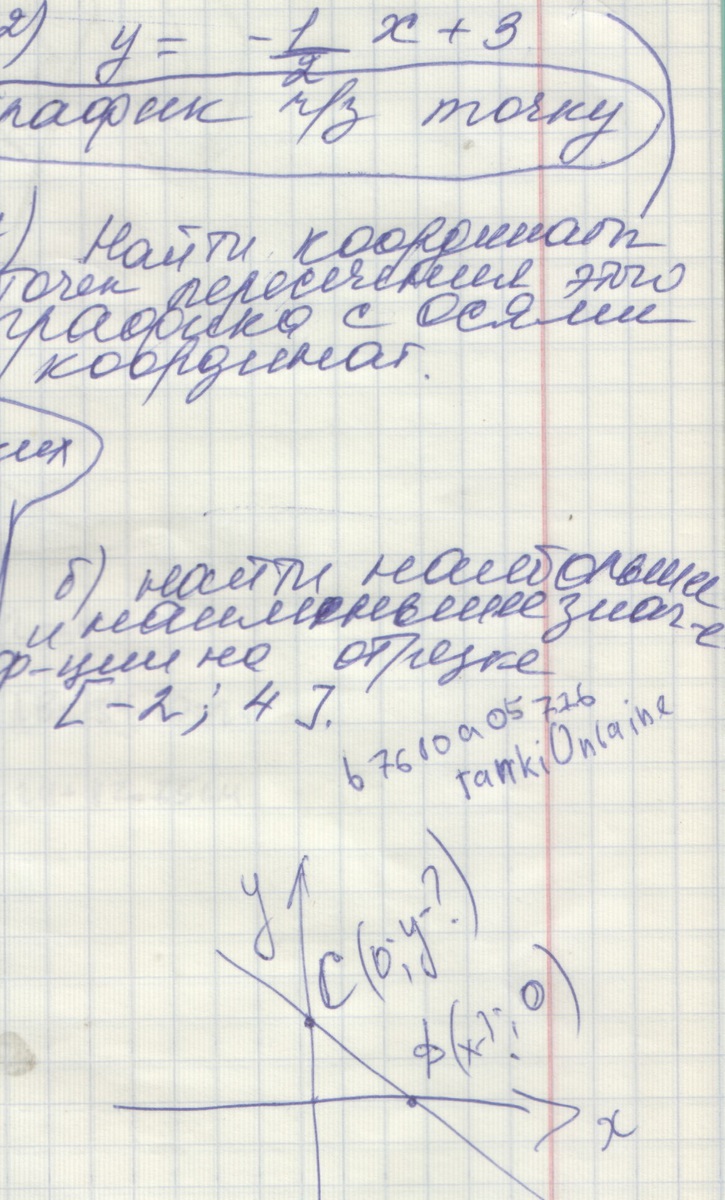 2) y = -1/2 x + 3
рафик ч/з точку
) Найти координаты
точек пересечения этого
графика с осями
координат.
их
б) найти наибольшее
и наименьшее знач-е
ф-ции на отрезке
[-2; 4].
b7610a05726
tankiOnlaine
y
C(0; y-?)
ф(x-?; 0)
x